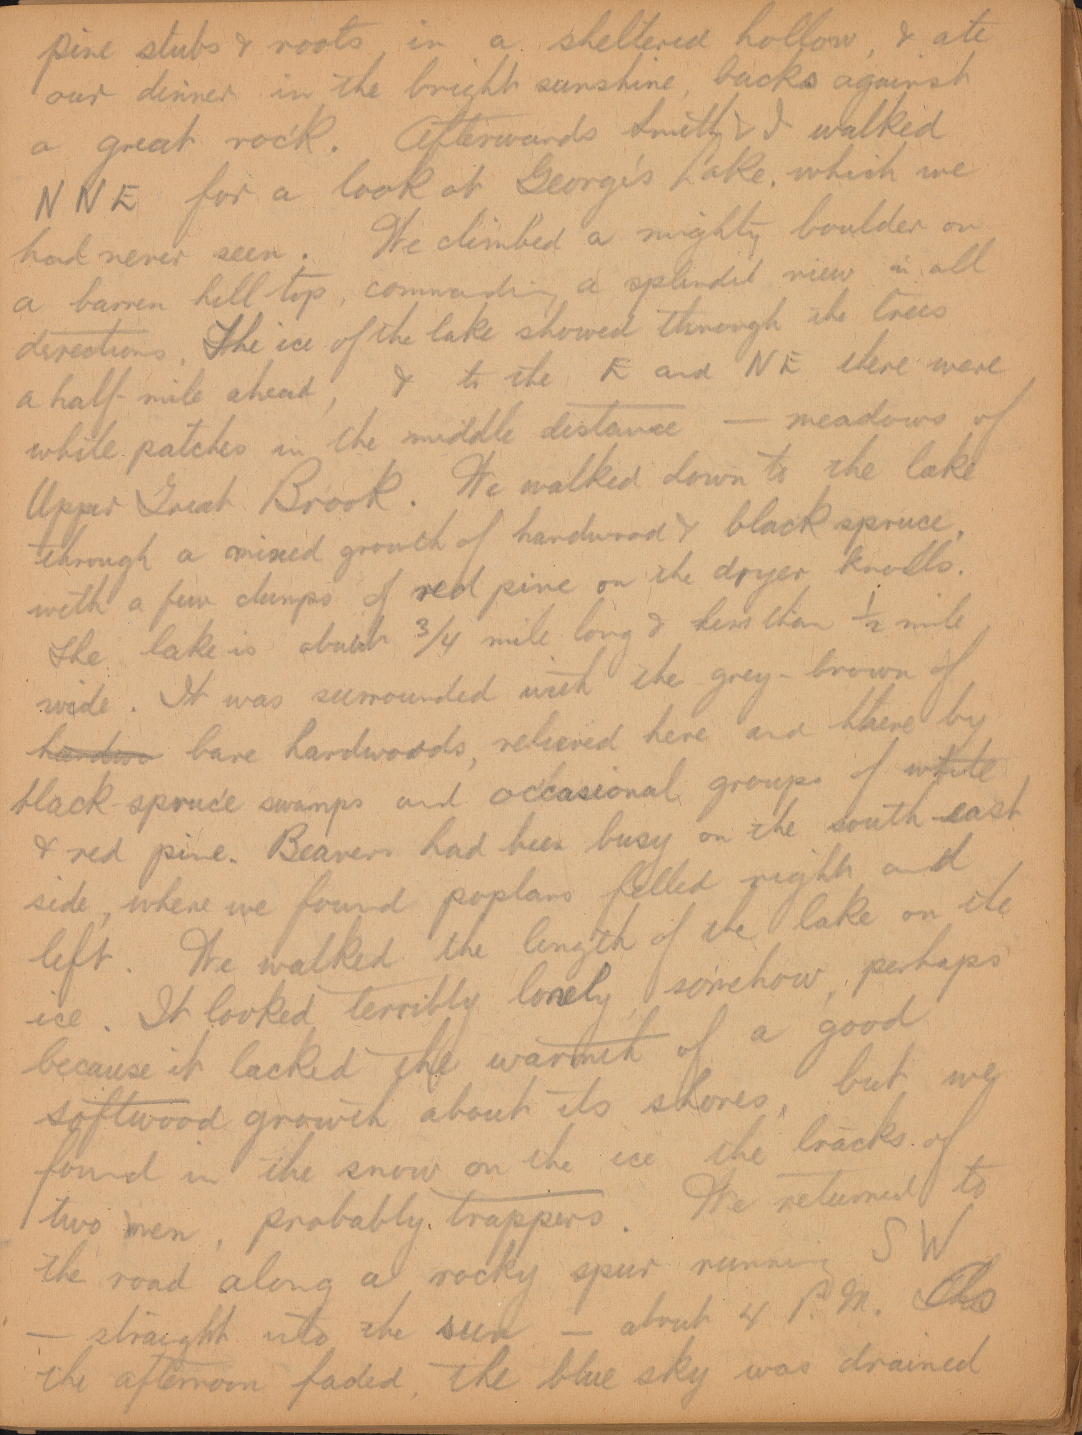 pine stubs & roots, in a sheltered hollow, & ate
our dinner in the bright sunshine, backs against
a great rock. Afterwards Smith & I walked
NNE for a look at George's Lake, which we
had never seen. We climbed a mighty boulder on
a barren hill top, commanding a splendid view in all
directions. The ice of the lake showed through the trees
a half-mile ahead, & to the E and NE there were
white patches in the middle distance — meadows of
Upper Great Brook. We walked down to the lake
through a mixed growth of hardwood & black spruce,
with a few clumps of red pine on the dryer knolls.
The lake is about 3/4 mile long & less than 1/2 mile
wide. It was surrounded with the grey-brown of
hardwo bare hardwoods, relieved here and there by
black-spruce swamps and occasional groups of white
& red pine. Beavers had been busy on the south-east
side, where we found poplars felled right and
left. We walked the length of the lake on the
ice. It looked terribly lonely, somehow, perhaps
because it lacked the warmth of a good
softwood growth about its shores, but we
found in the snow on the ice the tracks of
two men, probably trappers. We returned to
the road along a rocky spur running SW
— straight into the sun — about 4 P.M. As
the afternoon faded, the blue sky was drained